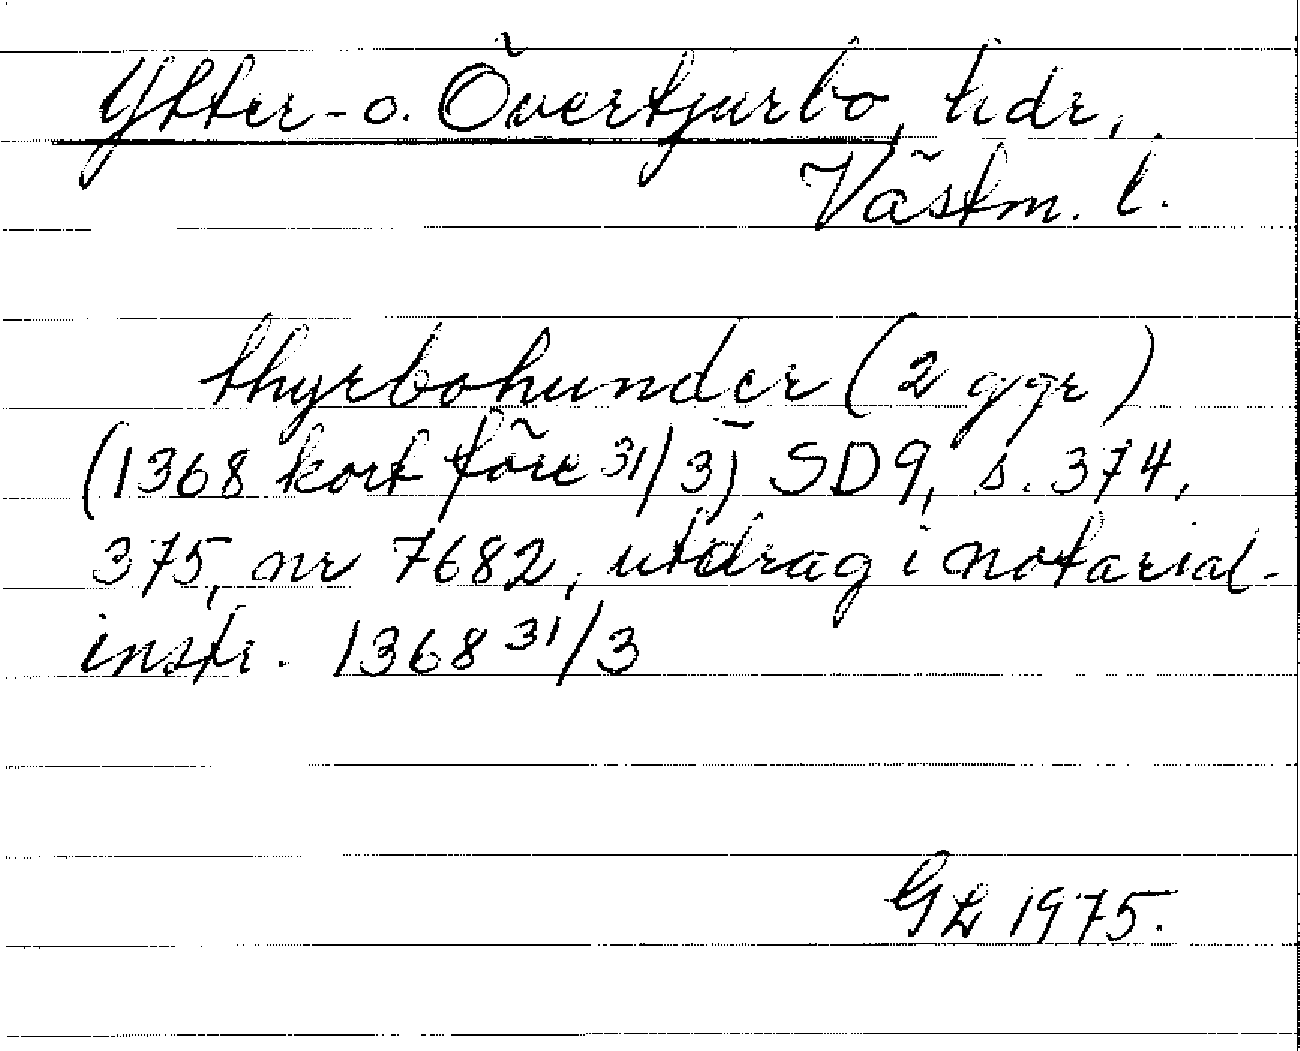 Ytter- o. Övertjurbo, hdr,
Västm. l.
thyrbohunder (2 ggr)
(1368 kort före 31/3) SD9, s. 374,
375, nr 7682, utdrag i notarial-
instr. 1368 31/3
GL 1975.